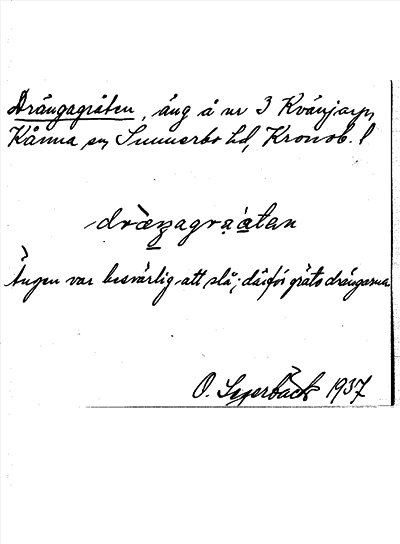 Drängagråten, äng å nr 3 Kvänjarp,
Kånna sn, Sunnerbo hd, Kronob. l
dræŋagrạ́ạtan
Ängen var besvärlig att slå; därför gräto drängarna
O. 1937